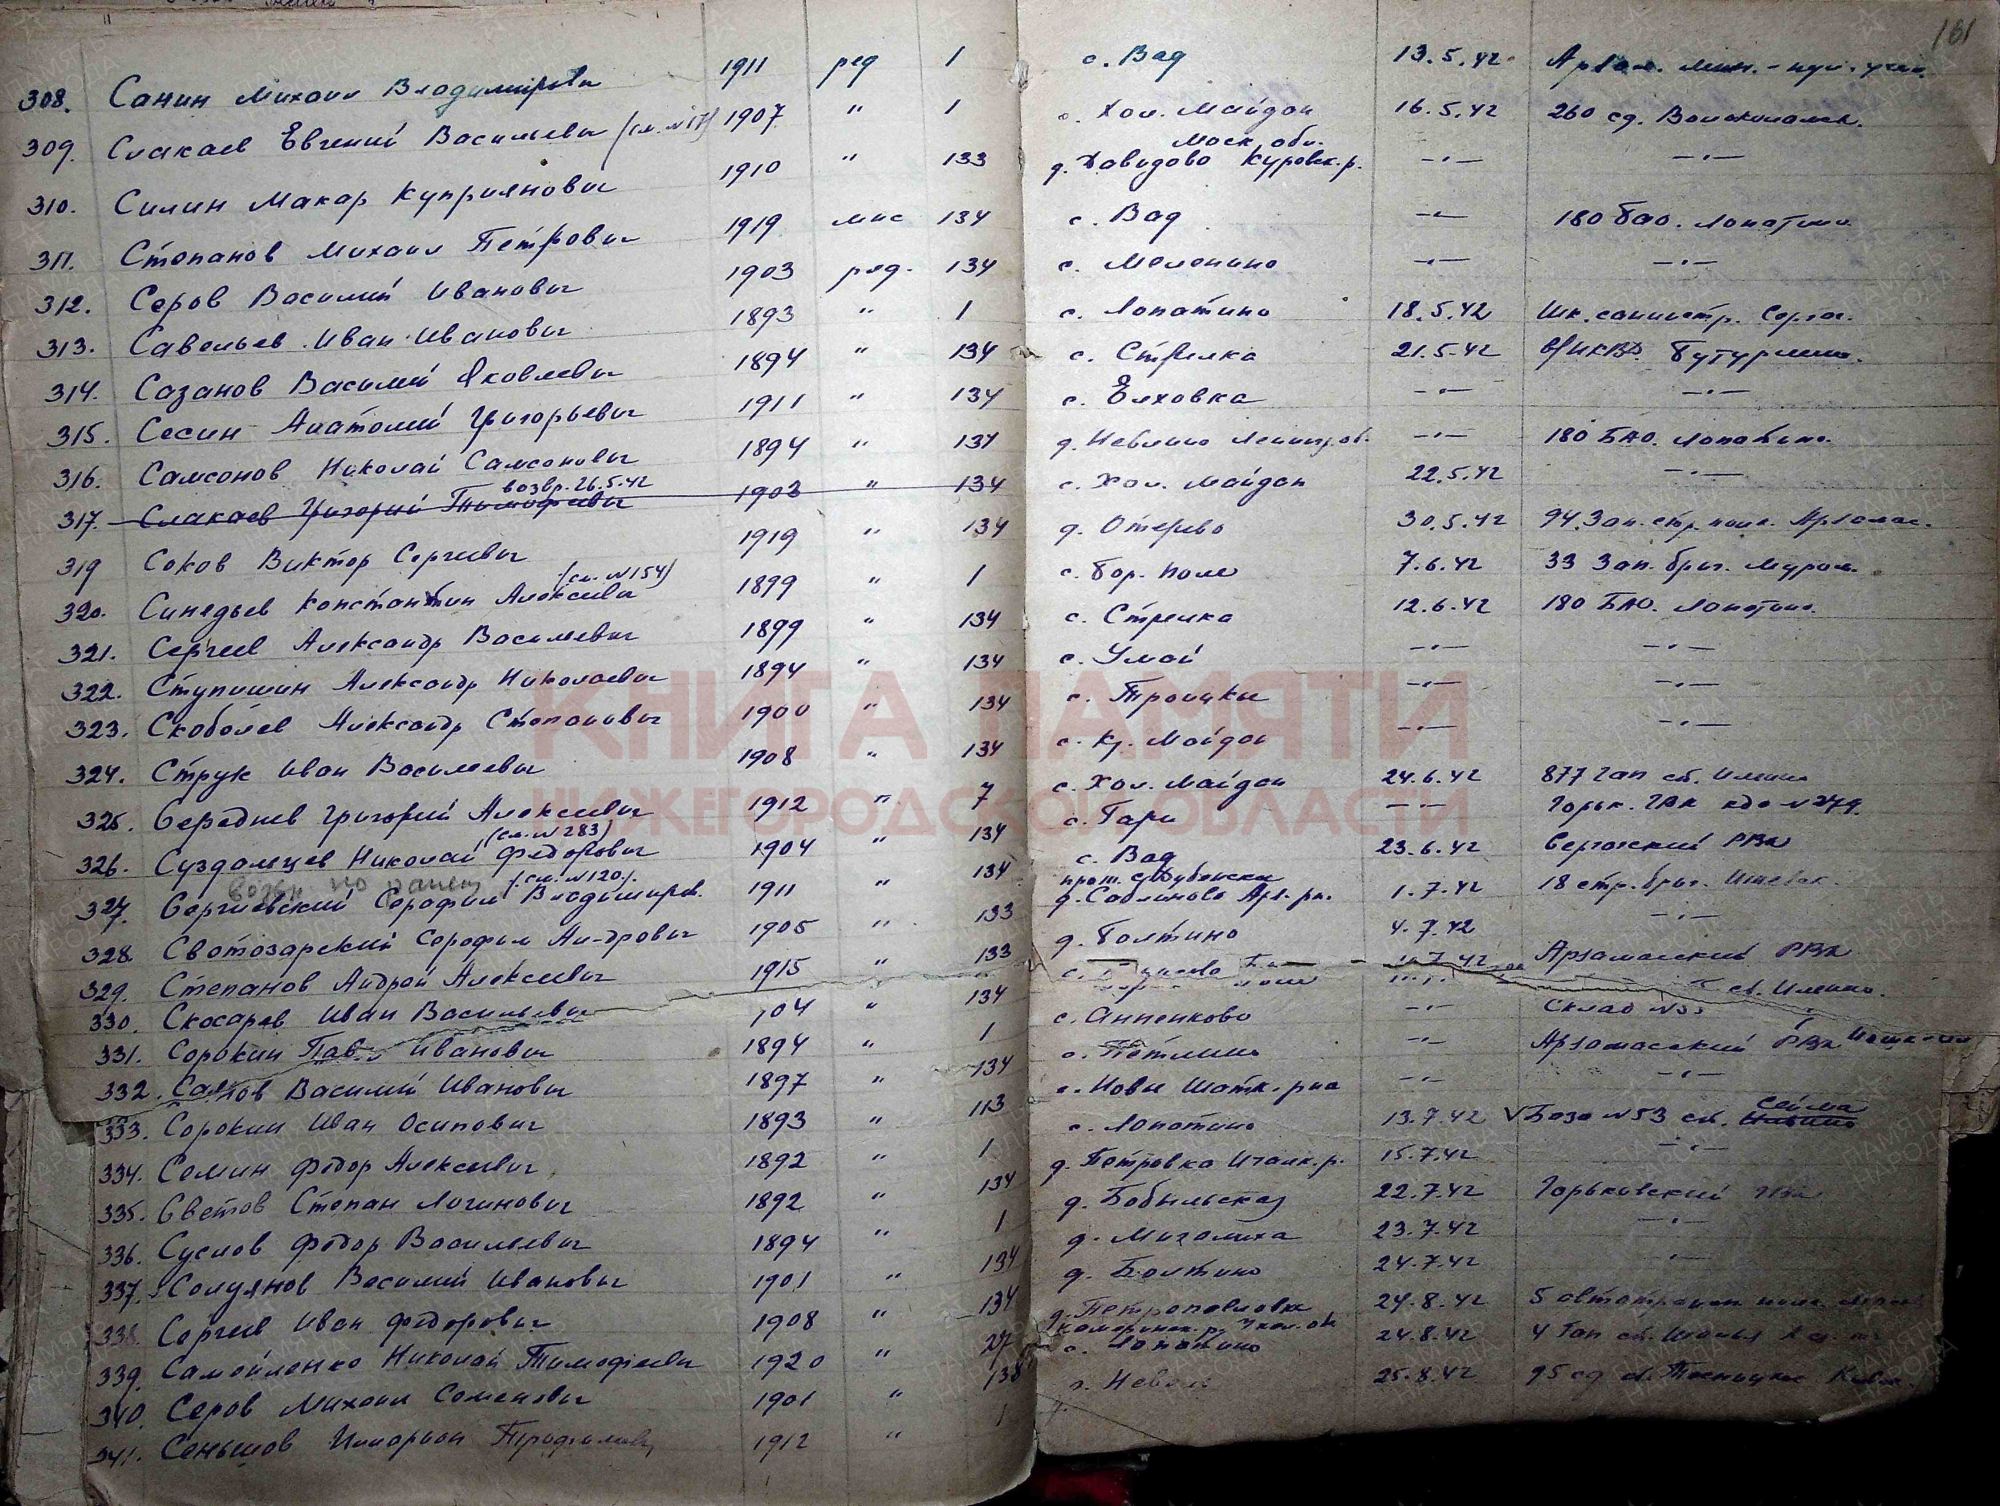 181
308. Санин Михаил Владимирович 1911 ряд 1 с. Вад 13.5.42
309. Слакаев Евгений Васильевич (см. №17) 1907 " 1 с. Хол. Майдан 16.5.42 260 сд. Волоколамск.
310. Силин Макар Куприянович 1910 " 133 Моск. обл. д. Давидово Куровск. р. -"- -"-
311. Степанов Михаил Петрович 1919 мнс 134 с. Вад -"- 180 БАО. Лопатино.
312. Серов Василий Иванович 1903 ряд. 134 с. Меленино -"- -"-
313. Савельев Иван Иванович 1893 " 1 с. Лопатино 18.5.42 Шк. санинстр. Сергач.
314. Сазанов Василий Яковлевич 1894 " 134 с. Стрелка 21.5.42 Бутурлино.
315. Сесин Анатолий Григорьевич 1911 " 134 с. Елховка -"- -"-
316. Самсонов Николай Самсонович 1894 " 134 д. -"- 180 БАО. Лопатино.
317. Слакаев Григорий Тимофеевич возвр. 26.5.42 1903 " 134 с. Хол. Майдан 22.5.42 -"-
319 Соков Виктор Сергеевич 1919 " 134 д. Отерево 30.5.42 94 Зап. стр. полк. Арзамас.
320. Синедьев Константин Алексеевич (см. №154) 1899 " 1 с. Бор. Поле 7.6.42 33 Зап. бриг. Муром.
321. Сергеев Александр Васильевич 1899 " 134 с. Стрелка 12.6.42 180 БАО. Лопатино.
322. Ступишин Александр Николаевич 1894 " 134 с. Умай -"- -"-
323. Скоболев Александр Степанович 1900 " 134 с. Троицкое -"- -"-
324. Струк Иван Васильевич 1908 " 134 с. Кр. Майдан -"- -"-
325. Середнев Григорий Алексеевич 1912 " 7 с. Хол. Майдан 24.6.42 877 гап ст. Ильино
326. Суздальцев Николай Федорович (см. №283) 1904 " 134 с. Гари -"- Горьк. ГВК
327. Сергиевский Серафим Владимиров. (см. №120). возвр. по ранен 1911 " 134 с. Вад 23.6.42 Сергачский РВК
328. Светозарский Серафим Андрович 1905 " 133 д. Саблуково Арз. рн. 1.7.42 18 стр. бриг. Ижевск.
329. Степанов Андрей Алексеевич 1915 " 133 д. Болтино 4.7.42 -"-
330. Скосарев Иван Васильевич 04 " 134 с. 7.42 Арзамасский РВК
331. Сорокин Пав. Иванович 1894 " 1 с. Анненково -"- Склад ст. Ильино.
332. Василий Иванович 1897 " 134 с. Петлино -"- Арзамасский РВК
333. Сорокин Иван Осипович 1893 " 113 с. Новы Шатк. рна -"- -"-
334. Семин Федор Алексеевич 1892 " 1 с. Лопатино 13.7.42 V База №53 ст. Сейма Ильино
335. Светов Степан Логинович 1892 " 134 д. Петровка Ичалк. р. 15.7.42 -"-
336. Суслов Федор Васильевич 1894 " 1 д. Бобыльская 22.7.42 Горьковский ГВК
337. Солуянов Василий Иванович 1901 " 134 д. Мигалиха 23.7.42 -"-
338. Сергеев Иван Федорович 1908 " 134 д. Болтино 24.7.42 -"-
339. Самойленко Николай Тимофеевич 1920 " 27 д. Петропавловка 24.8.42 5 автотрансп. полк.
340. Серов Михаил Семенович 1901 " 138 с. Лопатино 24.8.42 4 Гап ст.
341. Сеньшов Илларион Трофимович 1912 " 1 25.8.42 95 сд
КНИГА ПАМЯТИ
НИЖЕГОРОДСКОЙ ОБЛАСТИ